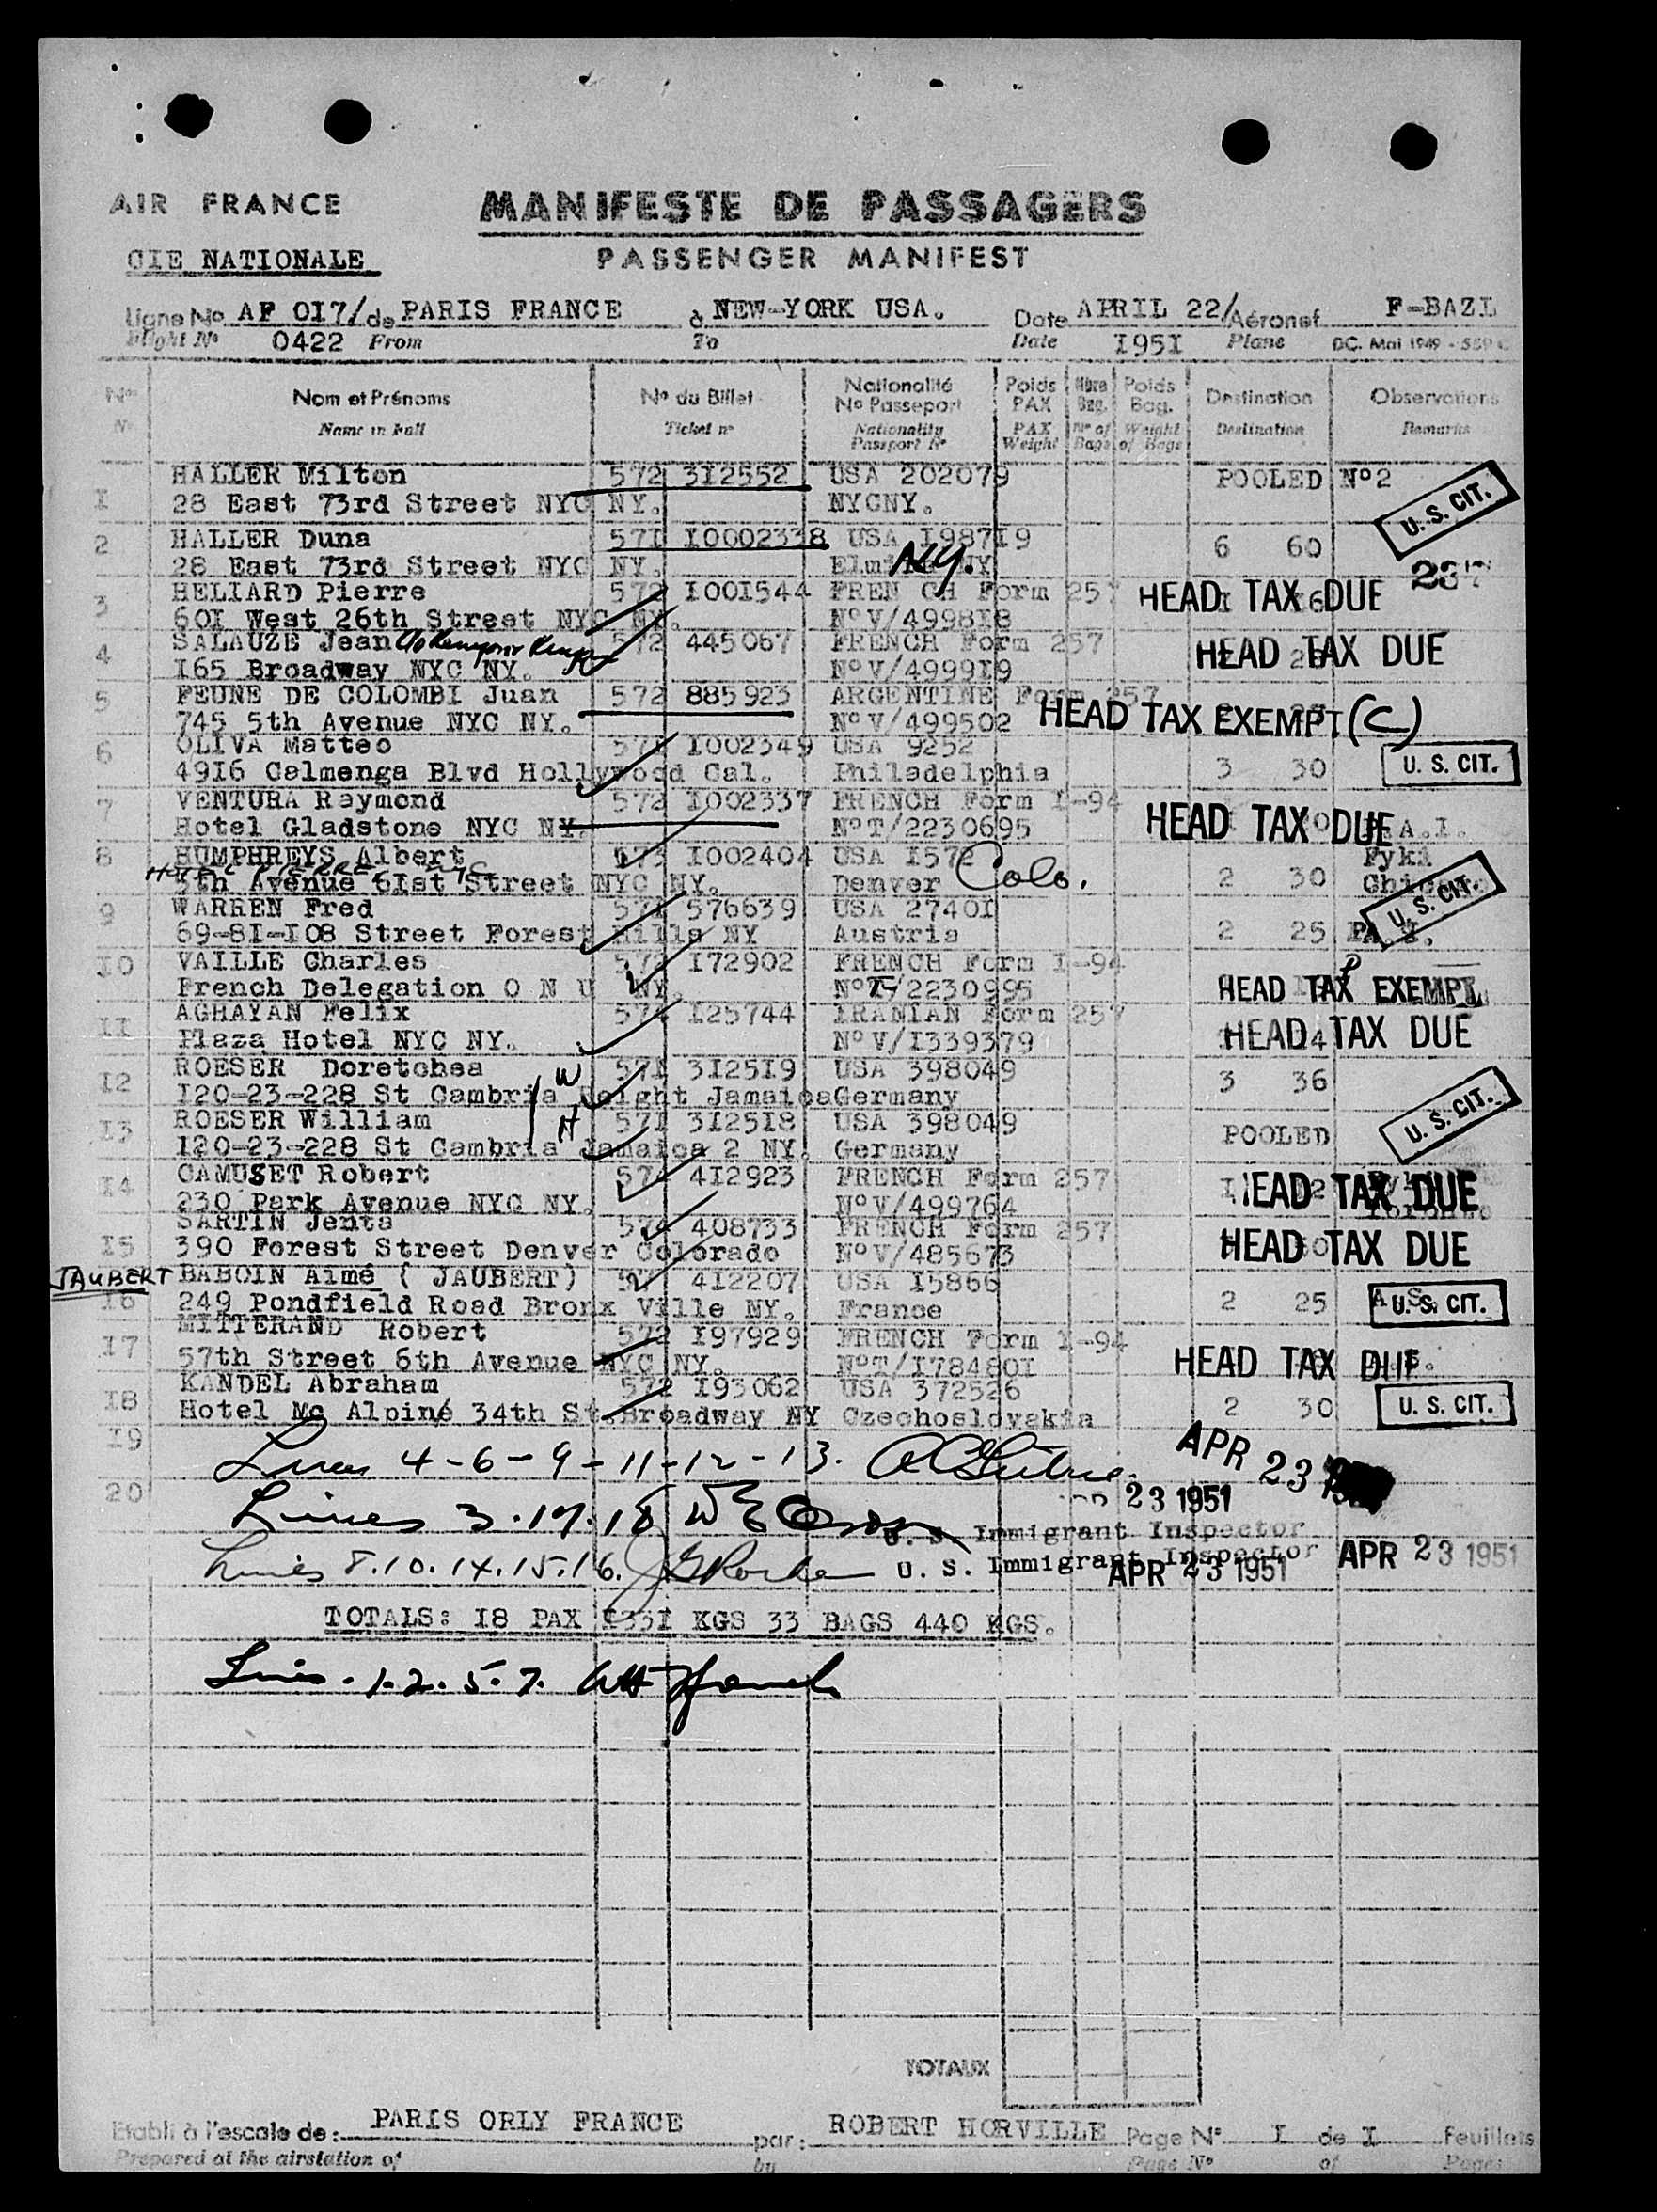 AIR FRANCE
MANIFESTE DE PASSAGERS
CIE NATIONALE
PASSENGER MANIFEST
Ligne No AF OI7/ de PARIS FRANCE à NEW-YORK USA. Date APRIL 22/ Aéronef F-BAZL
Flight No 0422 From To Date I95I Plane DC. Mai 1949
Nos Nom et Prénoms No du Billet Nationalité No Passeport Poids PAX Nbre Bag. Poids Bag. Destination Observations
No Name in full Ticket no Nationality Passport No PAX Weight No of Bags Weight of Bags Destination Remarks
I HALLER Milton 572 3I2552 USA 202079 POOLED No2
28 East 73rd Street NYC NY. NYCNY. U. S. CIT.
2 HALLER Duna 57I I0002338 USA I987I9 6 60
28 East 73rd Street NYC NY. Elmira NY N.Y.
3 HELIARD Pierre 572 I00I544 FREN CH Form 257 HEAD TAX DUE
60I West 26th Street NYC NY. No V/4998I8
4 SALAUZE Jean 572 445067 FRENCH Form 257 HEAD TAX DUE
I65 Broadway NYC NY. No V/4999I9
5 FEUNE DE COLOMBI Juan 572 885923 ARGENTINE Form 257
745 5th Avenue NYC NY. No V/499502 HEAD TAX EXEMPT (C)
6 OLIVA Matteo 57I I002349 USA 9252
49I6 Calmenga Blvd Hollywood Cal. Philadelphia 3 30 U. S. CIT.
7 VENTURA Raymond 572 I002337 FRENCH Form I-94 HEAD TAX DUE
Hotel Gladstone NYC NY. No T/2230695 P.A.I.
8 HUMPHREYS Albert I002404 USA I572 Fyki
HOTEL PIERRE NYC
5th Avenue 6Ist Street NYC NY. Denver Colo. 2 30 Chicago
9 WARREN Fred 57I 576639 USA 2740I U. S. CIT.
69-8I-I08 Street Forest Hills NY Austria 2 25
I0 VAILLE Charles 572 I72902 FRENCH Form I-94
French Delegation O N U NY. No T/2230995 HEAD TAX EXEMPT
II AGHAYAN Felix 574 I25744 IRANIAN Form 257 HEAD TAX DUE
Plaza Hotel NYC NY. No V/I339379
I2 ROESER Doretohea W 57I 3I25I9 USA 398049 3 36
I20-23-228 St Cambria Height Jamaica Germany
I3 ROESER William H 57I 3I25I8 USA 398049 POOLED U. S. CIT.
I20-23-228 St Cambria Jamaica 2 NY. Germany
I4 CAMUSET Robert 574 4I2923 FRENCH Form 257 HEAD TAX DUE
230 Park Avenue NYC NY. No V/499764
I5 SARTIN Jenta 574 408733 FRENCH Form 257 HEAD TAX DUE
390 Forest Street Denver Colorado No V/485673
JAUBERT BABOIN Aimé ( JAUBERT) 4I2207 USA I5866
I6 249 Pondfield Road Bronx Ville NY. France 2 25 U. S. CIT.
I7 MITTERAND Robert 572 I97929 FRENCH Form I-94
57th Street 6th Avenue NYC NY. No T/I78480I HEAD TAX DUE
I8 KANDEL Abraham 572 I93062 USA 372526
Hotel Mc Alpine 34th St. Broadway NY Czechoslovakia 2 30 U. S. CIT.
I9 Lines 4-6-9-11-12-13. APR 23
20 23 1951
Lines 3.17.18 U. S. Immigrant Inspector
Lines 8.10.14.15.16. U. S. Immigrant Inspector APR 23 1951 APR 23 1951
TOTALS: I8 PAX I33I KGS 33 BAGS 440 KGS.
Lines. 1.2.5.7.
TOTAUX
Etabli à l'escale de: PARIS ORLY FRANCE par: ROBERT HORVILLE Page No I de I Feuillets
Prepared at the airstation of by Page No of Pages